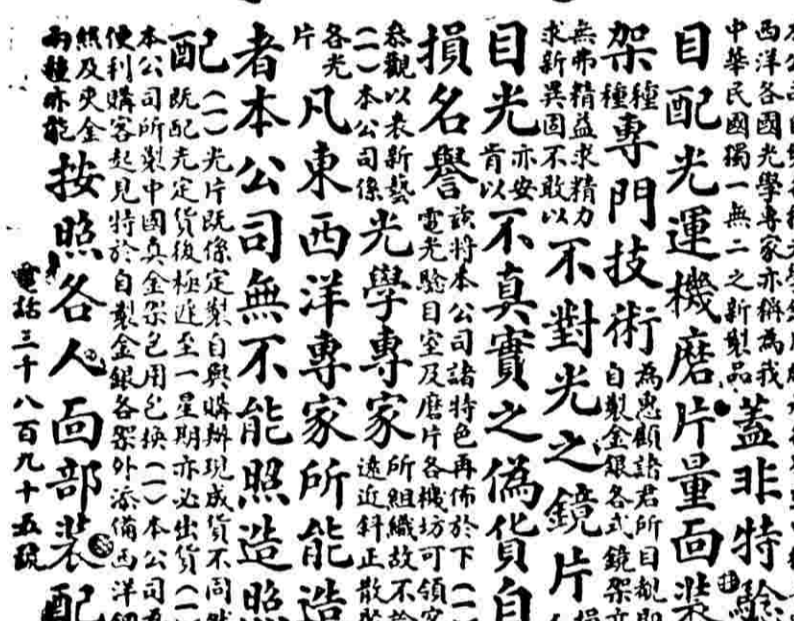 西洋各國光學專家亦稱為我
中華民國獨一無二之新製品
蓋非特驗
目配光運機磨片量面裝
架
種種
專門技術
為惠顧諸君所目覩即
自製金銀各式鏡架亦
無弗精益求精力
求新異固不敢以
不對光之鏡片
目光
亦安
肯以
不真實之偽貨自
損名譽
茲將本公司諸特色再佈於下(一)
電光驗目室及磨片各機坊可領客
參觀以表新藝
(一)本公司係
光學專家
所組織故不論
遠近斜正散
各光
片
凡東西洋專家所能造
者本公司無不能照造照
配
(一)光片既係定製自與購辦現成貨不同然
既配光定貨後極遲至一星期亦必出貨(一)
本公司所製中國真金架包用包換(一)本公司為
便利購客起見特於自製金銀各架外添備西洋
然及夾金
兩種亦能
按照各人面部裝配
電話三千八百九十五號